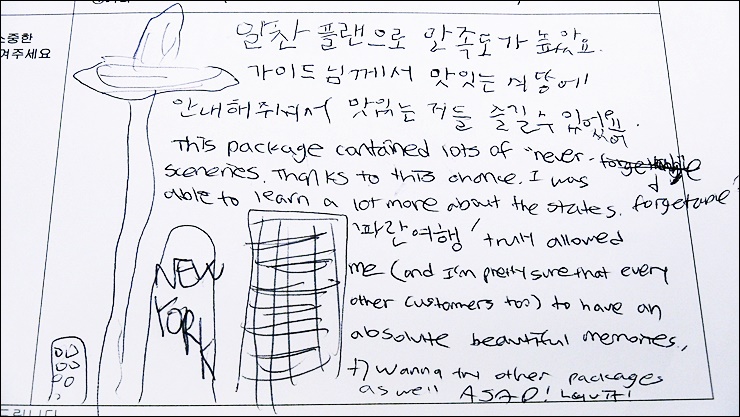 소중한
여주세요
알찬 플랜으로 만족도가 높았어요.
가이드님께서 맛있는 식당에
안내해주셔서 맛있는 저녁을 즐길 수 있었어요.
This package contained lots of "never-
sceneries. Thanks to this chance, I was
able to learn a lot more about the states. forgetable"
'파란여행' truly allowed
me (and I'm pretty sure that every
other customers too) to have an
absolute beautiful memories.
+) Wanna try other packages
as well ASAP!
NEW
YORK
드립니다